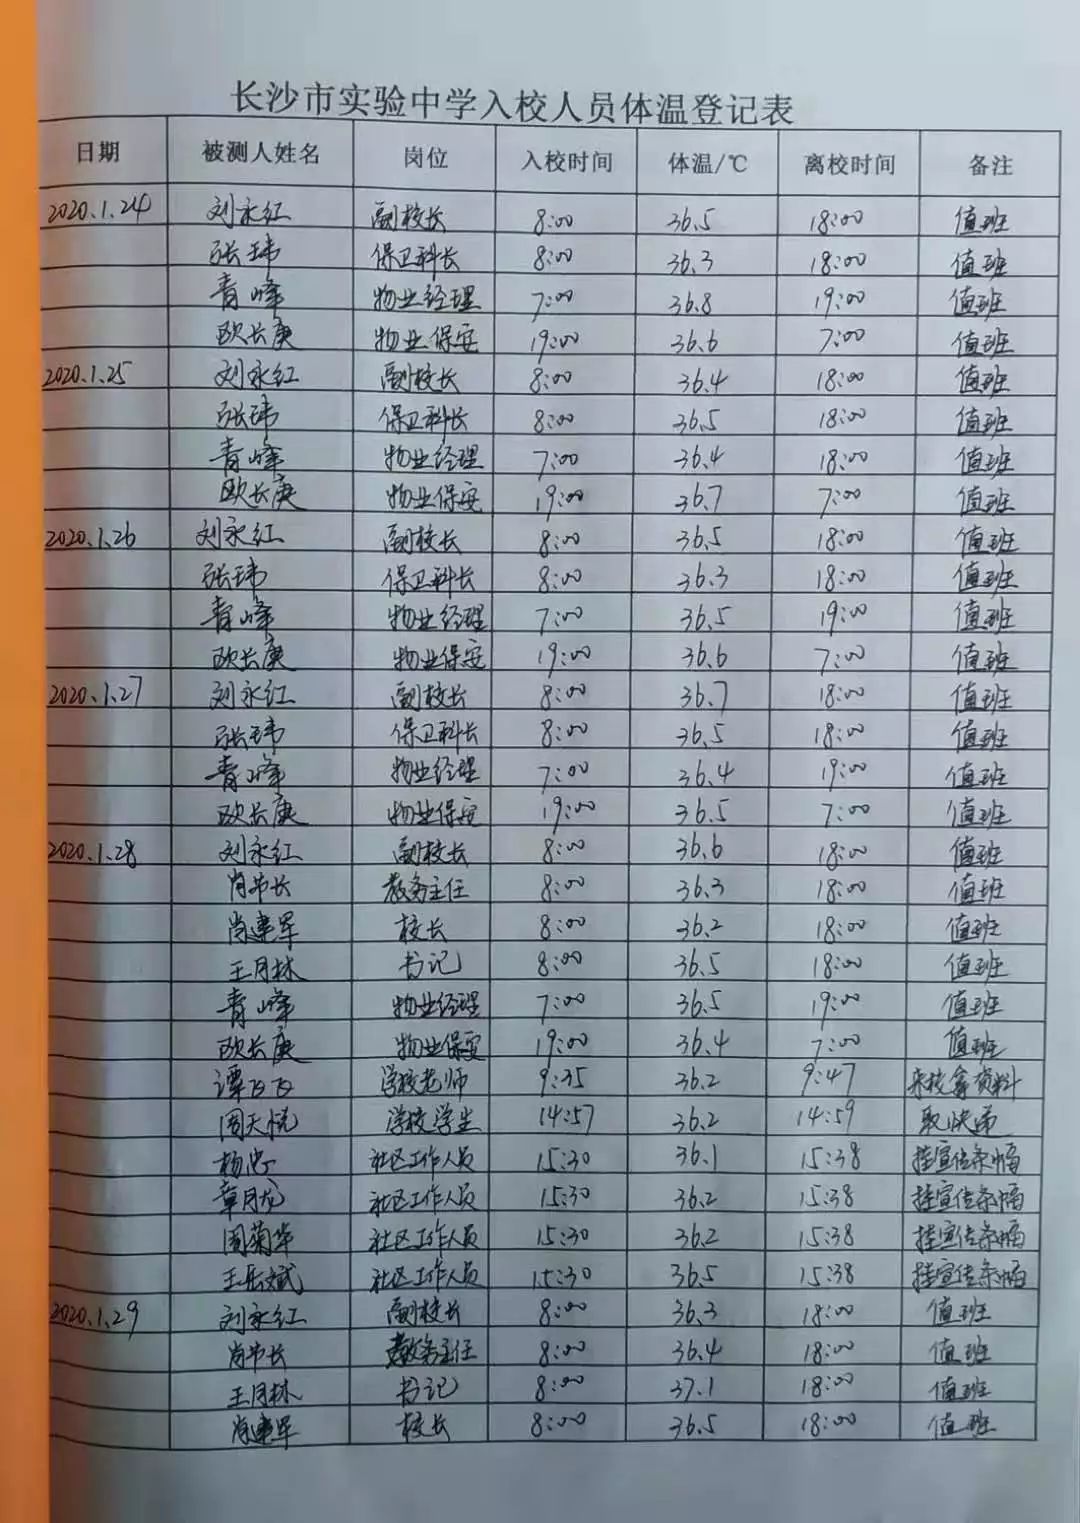 长沙市实验中学入校人员体温登记表
日期 被测人姓名 岗位 入校时间 体温/℃ 离校时间 备注
2020.1.24 刘永红 副校长 8:00 36.5 18:00 值班
张玮 保卫科长 8:00 36.3 18:00 值班
青峰 物业经理 7:00 36.8 19:00 值班
欧长庚 物业保安 19:00 36.6 7:00 值班
2020.1.25 刘永红 副校长 8:00 36.4 18:00 值班
张玮 保卫科长 8:00 36.5 18:00 值班
青峰 物业经理 7:00 36.4 18:00 值班
欧长庚 物业保安 19:00 36.7 7:00 值班
2020.1.26 刘永红 副校长 8:00 36.5 18:00 值班
张玮 保卫科长 8:00 36.3 18:00 值班
青峰 物业经理 7:00 36.5 19:00 值班
欧长庚 物业保安 19:00 36.6 7:00 值班
2020.1.27 刘永红 副校长 8:00 36.7 18:00 值班
张玮 保卫科长 8:00 36.5 18:00 值班
青峰 物业经理 7:00 36.4 19:00 值班
欧长庚 物业保安 19:00 36.5 7:00 值班
2020.1.28 刘永红 副校长 8:00 36.6 18:00 值班
教务主任 8:00 36.3 18:00 值班
肖建军 校长 8:00 36.2 18:00 值班
王月林 书记 8:00 36.5 18:00 值班
青峰 物业经理 7:00 36.5 19:00 值班
欧长庚 物业保安 19:00 36.4 7:00 值班
谭飞飞 学校老师 9:35 36.2 9:47 来校拿资料
周天悦 学校学生 14:57 36.2 14:59 取快递
杨忠 社区工作人员 15:30 36.1 15:38 挂宣传条幅
章月龙 社区工作人员 15:30 36.2 15:38 挂宣传条幅
周菊华 社区工作人员 15:30 36.2 15:38 挂宣传条幅
王岳斌 社区工作人员 15:30 36.5 15:38 挂宣传条幅
2020.1.29 刘永红 副校长 8:00 36.3 18:00 值班
教务主任 8:00 36.4 18:00 值班
王月林 书记 8:00 37.1 18:00 值班
肖建军 校长 8:00 36.5 18:00 值班